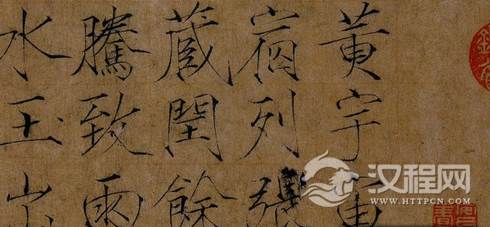 黃宇宙
宿列張
藏閏餘
騰致雨
水玉出
汉程网
WWW.HTTPCN.COM